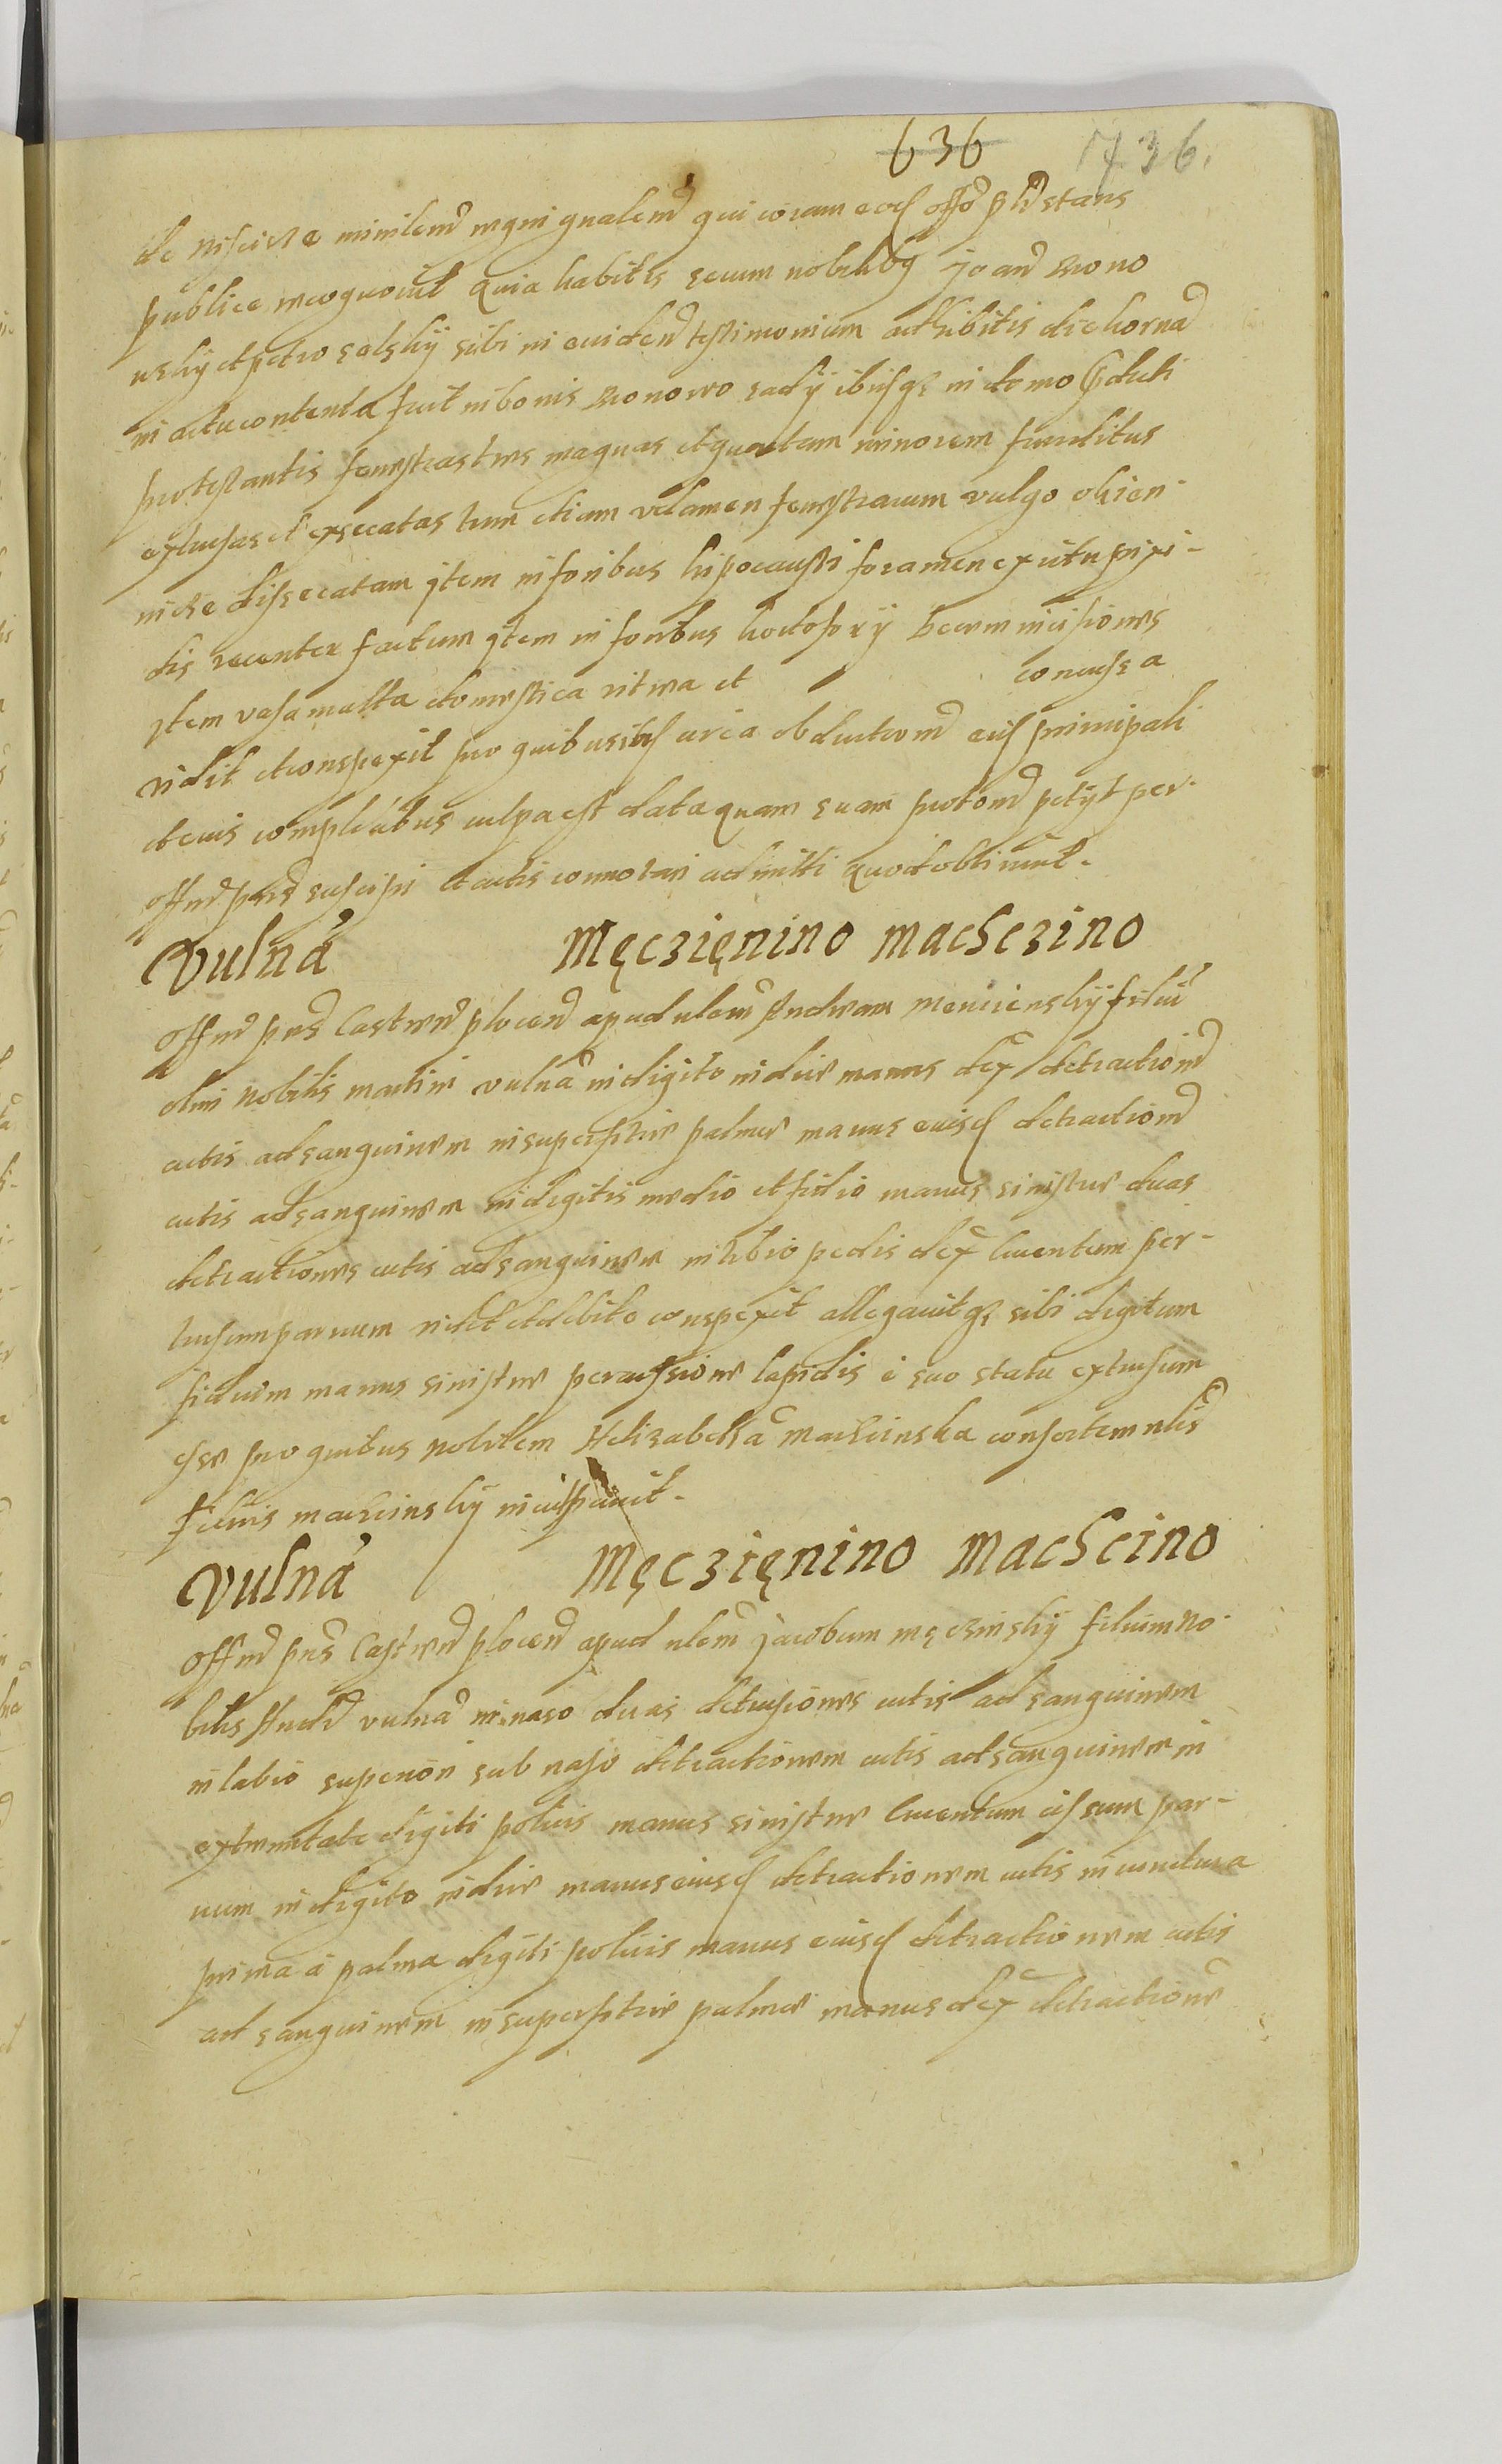 636 1736.
de miniłem regni gnałem qui coram eod offo pnł stans
publice recognovit Quia habitis secum nobilibg Joan Mono
wskÿ et petro selskÿ sibi in eviden testimonium adhibitis die horna
in actu contenta fuit in bonis Monowo sadÿ ibusqȝ in domo
protestantis fenestras tres magnas et quartam minorem funditus
extrusas et exsecatas tum etiam velamen fenestrarum vulgo okien
nicze dissecatam jtem in foribus hipocausti foramen ex ictu pixi-
dis recenter factum jtem in foribus incisiones
jtem vasa multa domestica vitrea et concussa
vidit et conspexit pro quibus circa obductiom eius principali
et eius complicibus culpa est data quam suam protom petÿt per
offm pns suscipi et actis connotari admitti Quod obtinuit.
Vulna Męczienino Machczino
Offm pns Castren plocen apud nlem Andream Mencienskÿ filiu
olim nobilis Martini vulna in digito indice manus dex detractiom
cutis ad sanguinem in superficie palmae manus eiusd detractiom
cutis ad sanguinem in digitis medio et fidio manus sinistrae duas
detractiones cutis ad sanguinem in tibio pedis dex cruentum per-
tusum parvum vidit et debite conspexit allegavitqȝ sibi digitum
fidium manus sinistrae percussione lapidis e suo statu extrusum
esse pro quibus nobilem Helizabetha Machcinska consortem nlis
felicis Machcinskÿ inculpavit.
Vulna Męczienino Machcino
Offm pns Castren plocen apud nlem Jacobum Męczinskÿ filium no
bilis Andr vulna in naso duas detrusiones cutis ad sanguinem
in labio superiori sub naso detractionem cutis ad sanguinem in
extremitate digiti policis manus sinistrae cruentum cissum par-
vum in digito indice manus eiusd detractionem cutis in iunctura
prima a palma digiti policis manus eiusd detractionem cutis
ad sanguinem in superficie palmae manus dex detractione